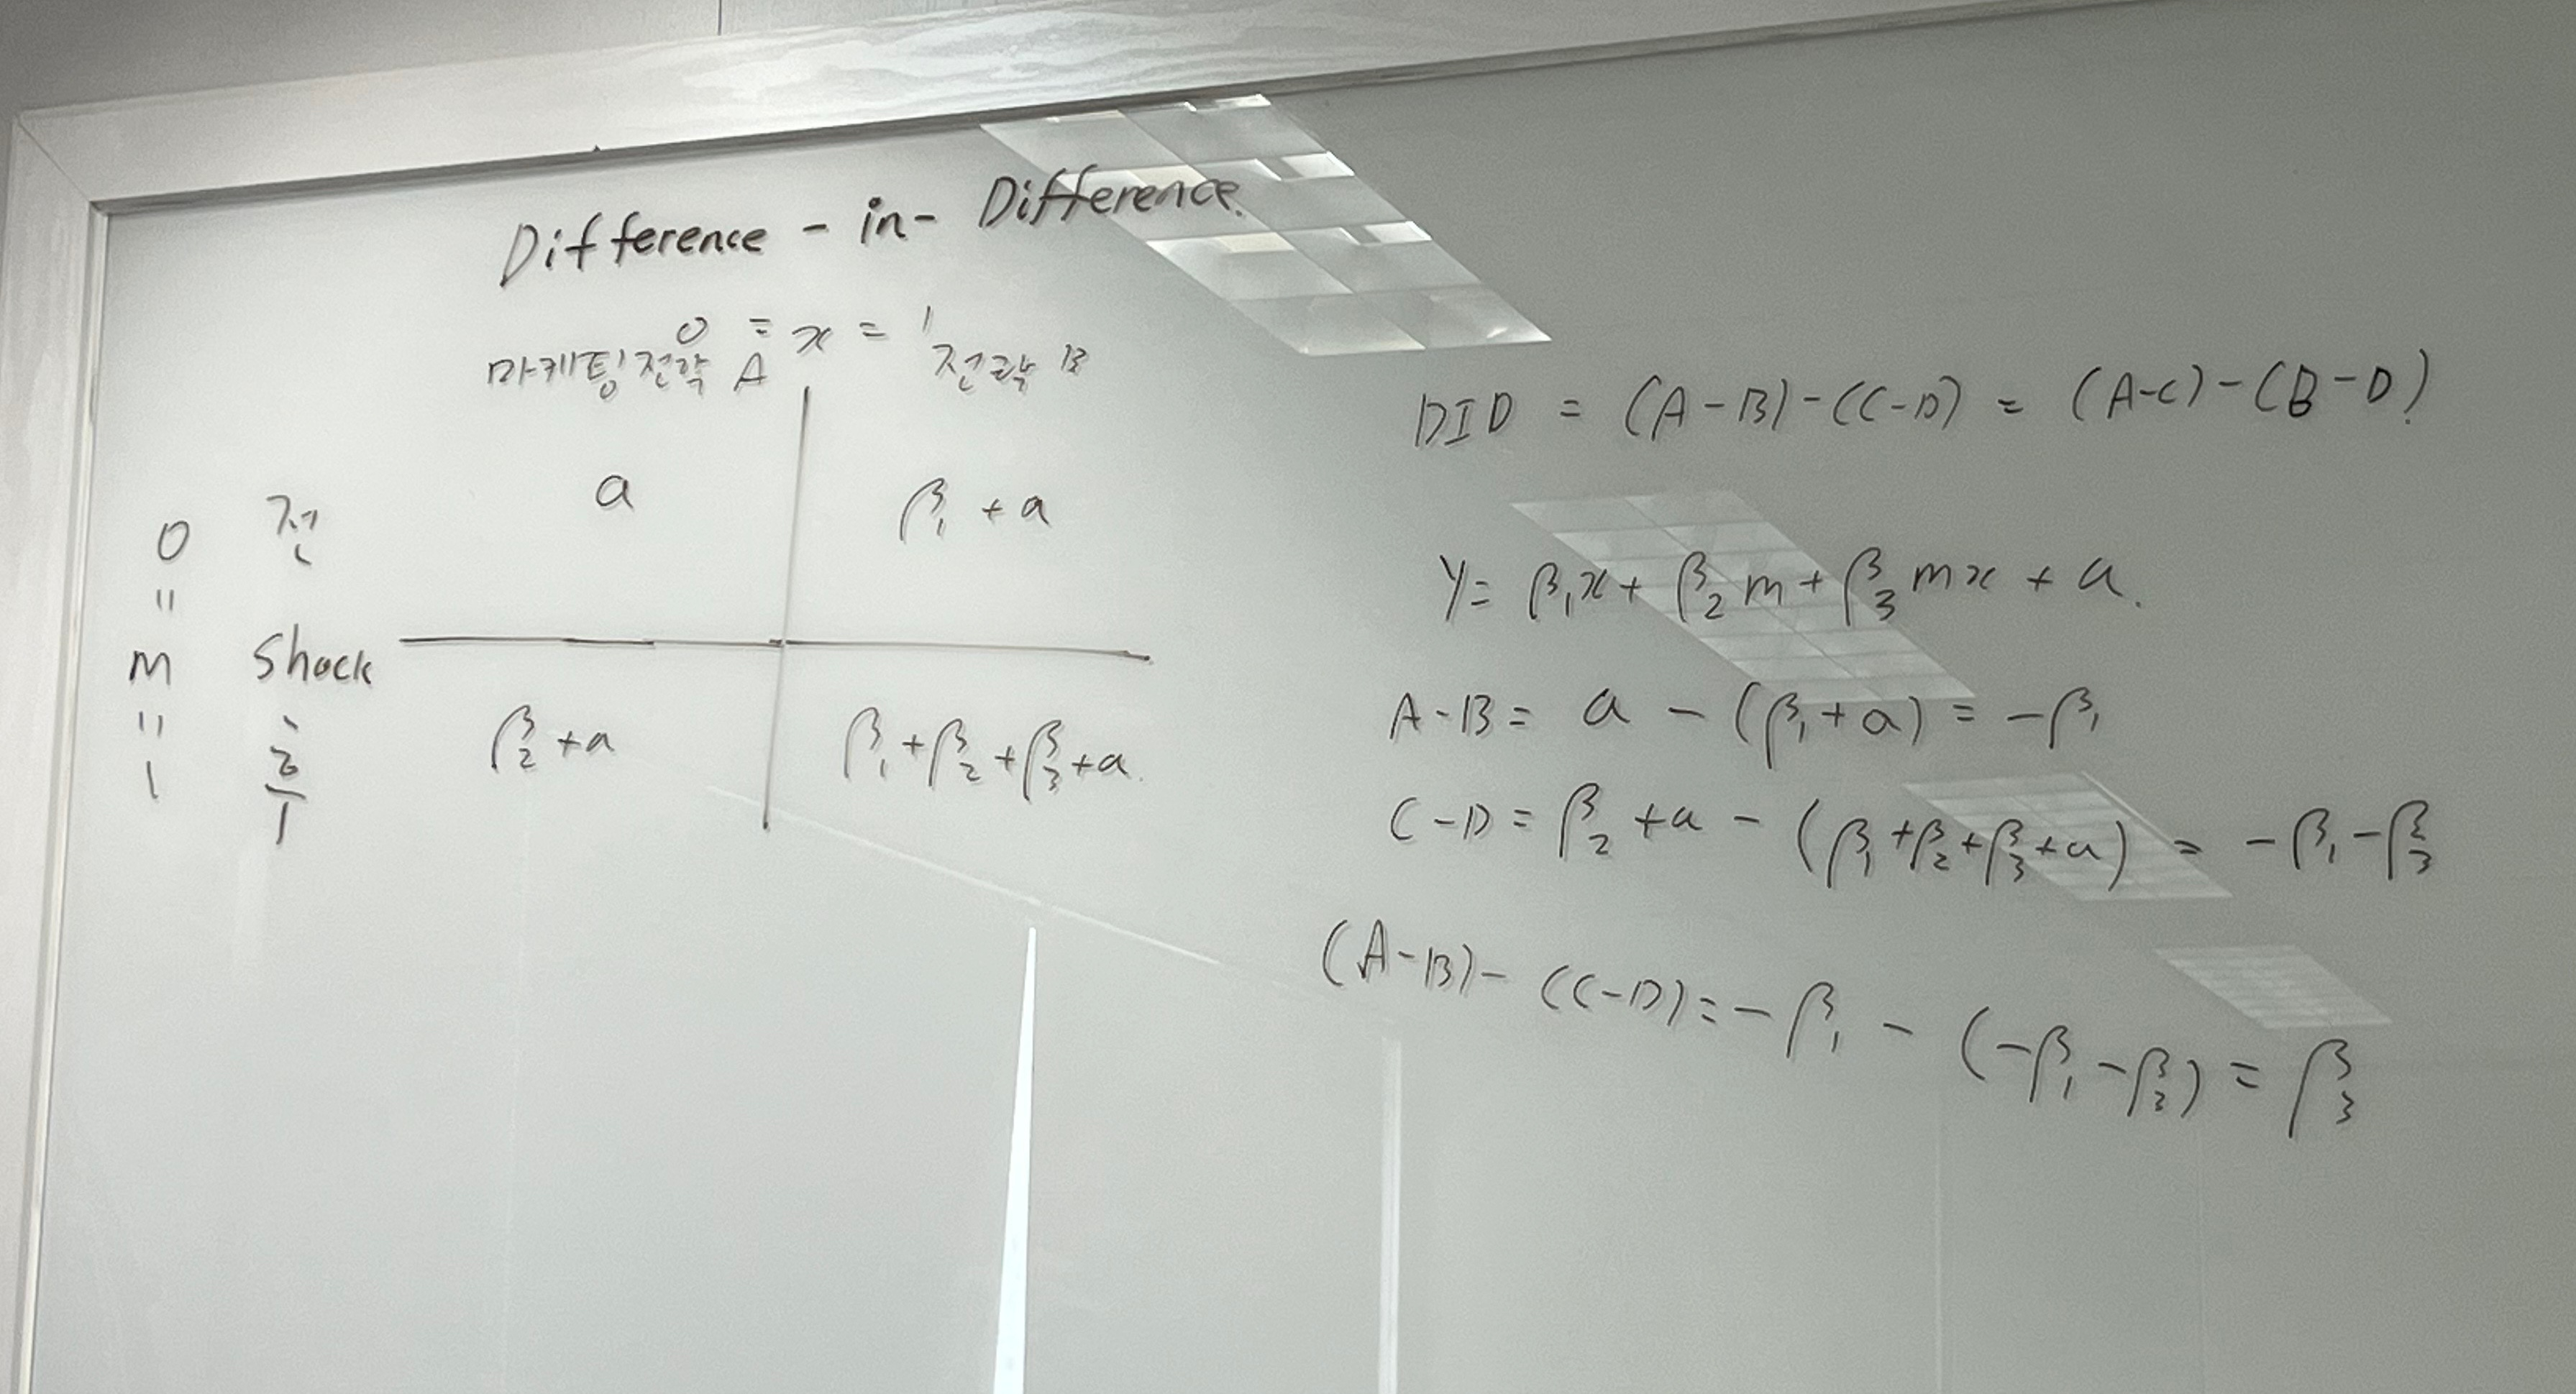 Difference - in - Difference.
0 = x = 1
마케팅전략 A 전략 B
0 전 a β₁ + a
"
m Shock
"
1 후 β₂ + a β₁ + β₂ + β₃ + a.
DID = (A-B)-(C-D) = (A-C)-(B-D).
Y = β₁x + β₂m + β₃mx + a.
A-B = a - (β₁ + a) = -β₁
C-D = β₂ + a - (β₁ + β₂ + β₃ + a) = -β₁ - β₃
(A-B) - (C-D) = -β₁ - (-β₁ - β₃) = β₃